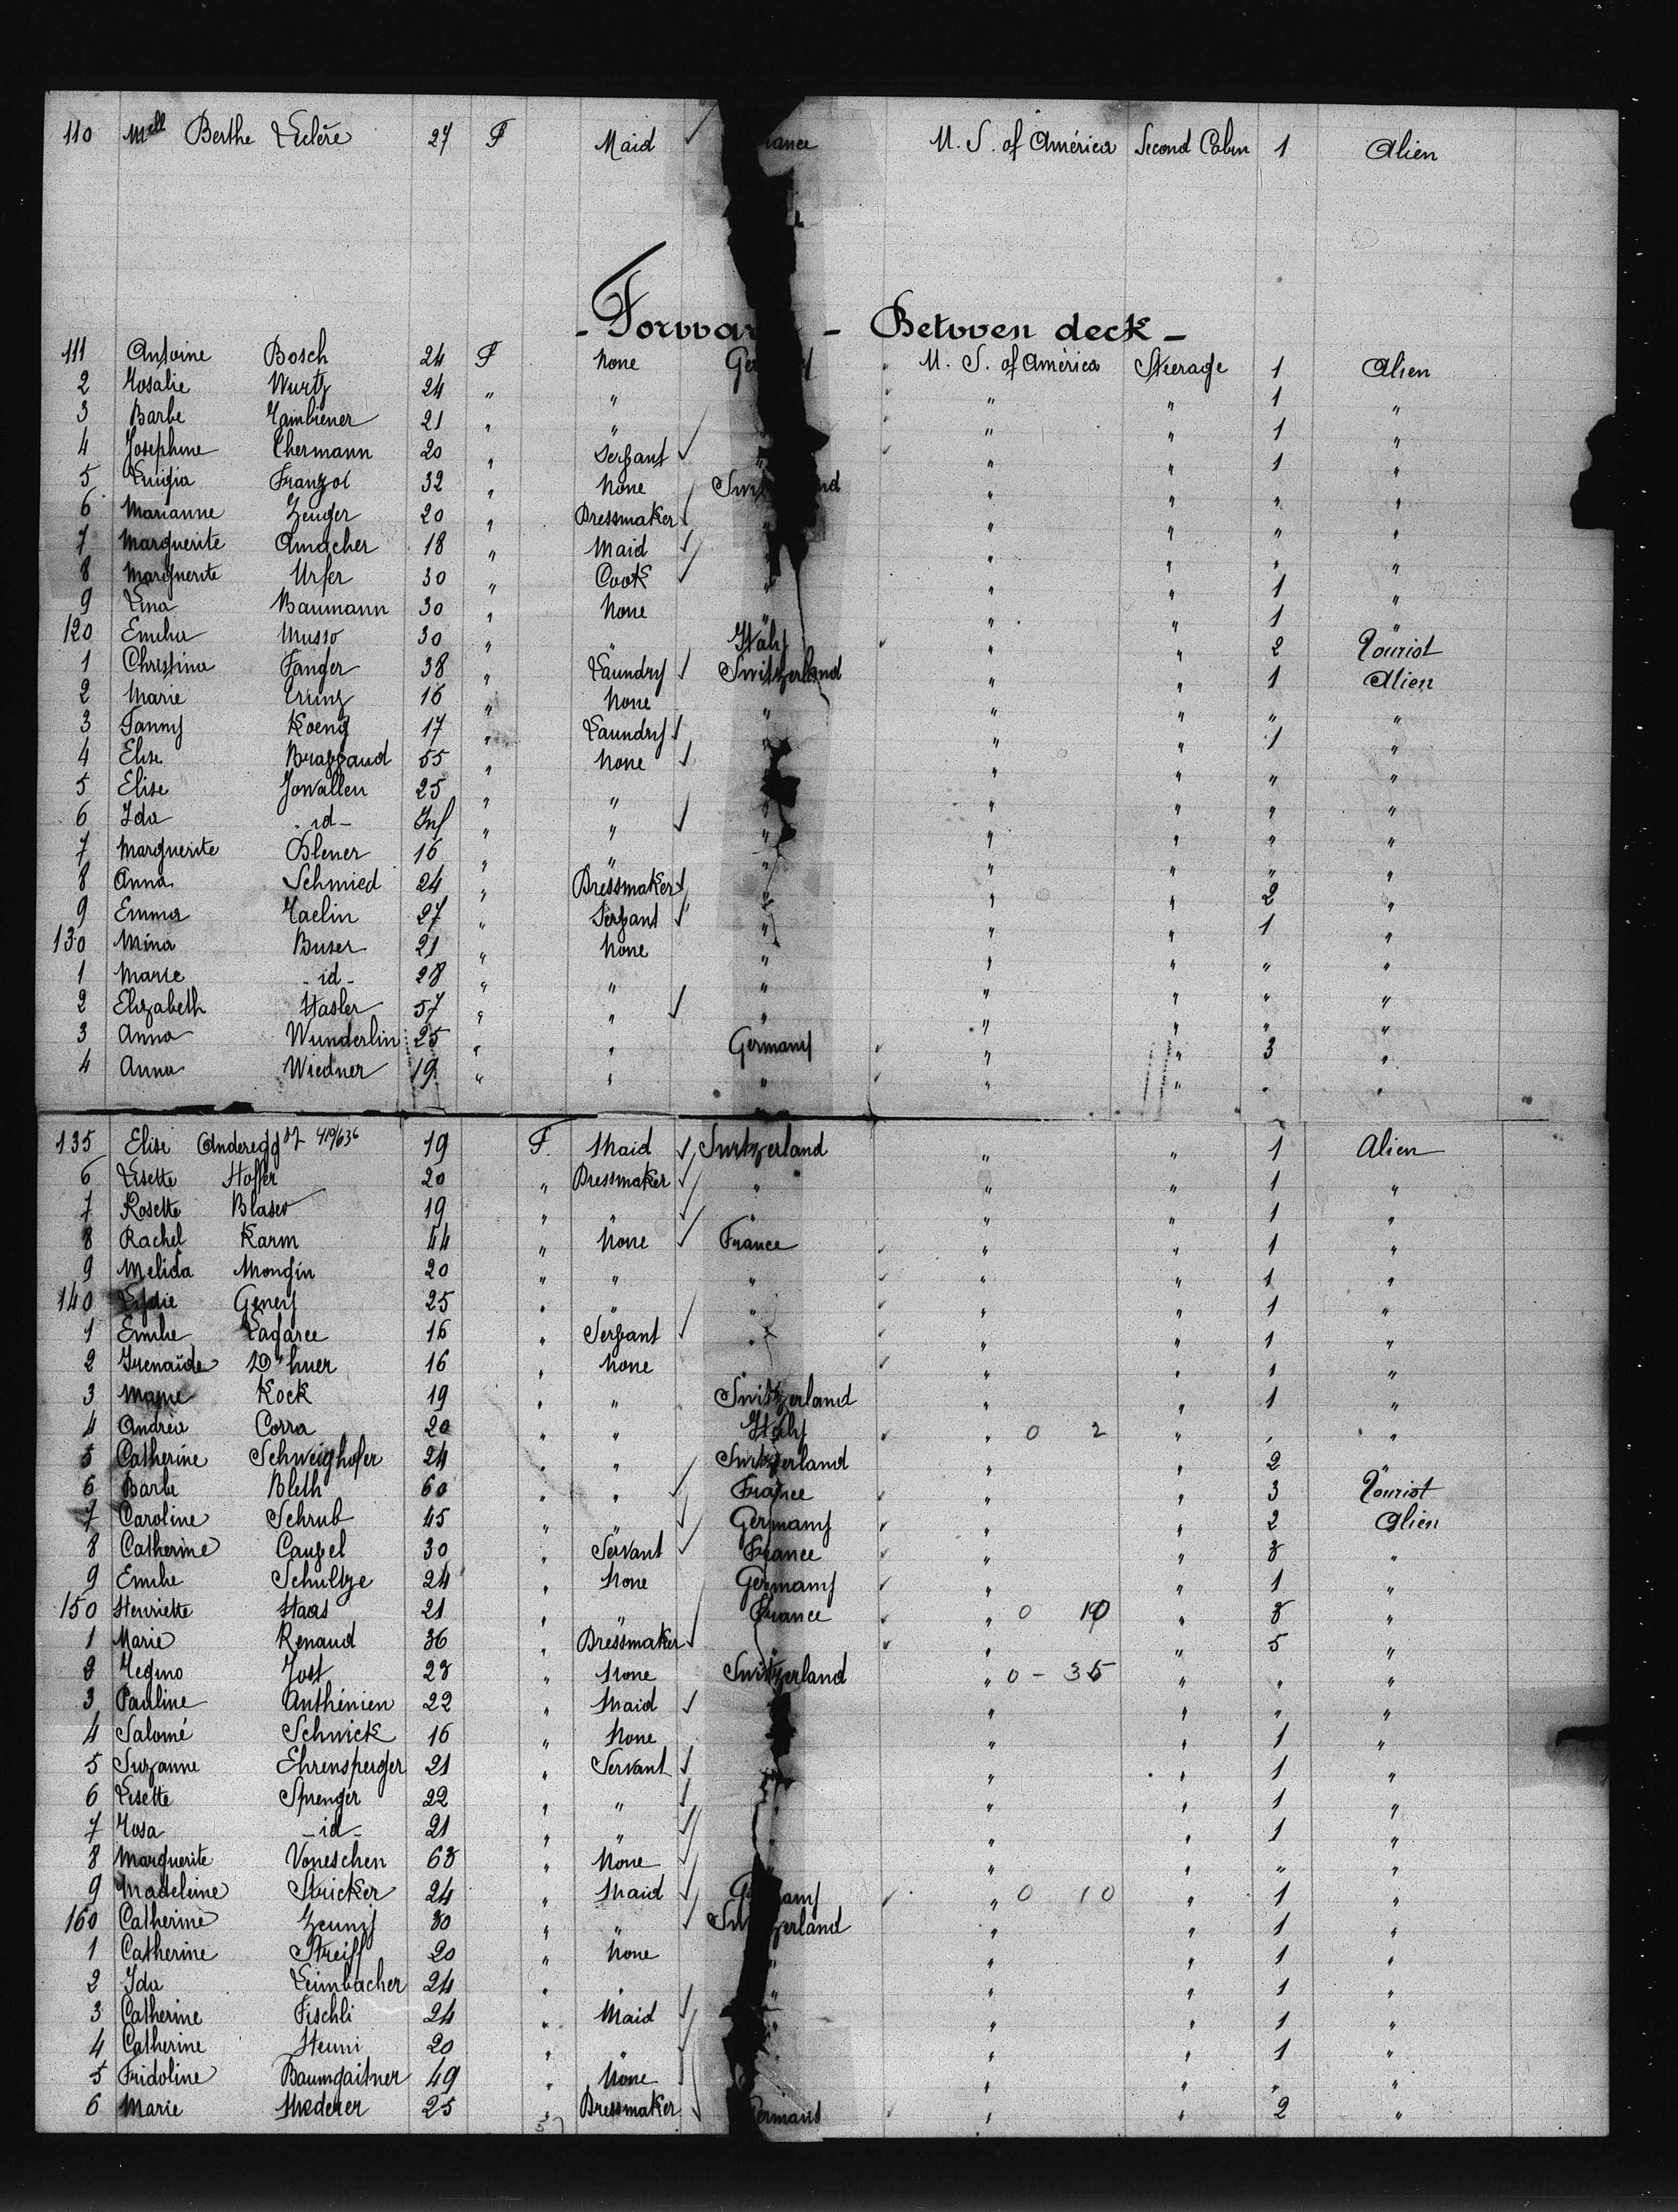 110 Mell Berthe Leclère 27 F Maid ance U. S. of América Second Cabin 1 Alien
- Forwar - Betwen deck -
111 Antoine Bosch 24 F None Ge y U. S. of América Steerage 1 Alien
2 Rosalie Wurtz 24 " " " " 1 "
3 Barbe 21 " " " " 1 "
4 Josephine Ehermann 20 " Servant " " " 1 "
5 Luigia Franzoi 32 " None Swi nd " " " "
6 Marianne Zenger 20 " Dressmaker " " " " "
7 Marguerite Amacher 18 " Maid " " " " "
8 Marguerite Urfer 30 " Cook " " " 1 "
9 Lina Baumann 30 " None " " " 1 "
120 Emilia Musso 30 " " Italy " " 2 Tourist
1 Christina Fanger 38 " Laundry Switzerland " " 1 Alien
2 Marie 16 " None " " " " "
3 Fanny Koenig 17 " Laundry " " " 1 "
4 Elise 55 " None " " " "
5 Elise Jowallen 25 " " " " " " "
6 Ida - id - Inf " " " " " " "
7 Marguerite Blener 16 " " " " " " "
8 Anna Schmied 24 " Dressmaker " " " 2 "
9 Emma Haelin 27 " Servant " " " 1 "
130 Mina Buser 21 " None " " " " "
1 Marie - id - 28 " " " " " " "
2 Elizabeth Hasler 57 " " " " " " "
3 Anna Wunderlin 25 " " Germany " " 3 "
4 Anna Wiedner 19 " " " " " " "
135 Elise Anderegg 419/636 19 F. Maid Switzerland " " 1 Alien
6 Lisette Hofer 20 " Dressmaker " " " 1 "
7 Rosette Blaser 19 " " " " " 1 "
8 Rachel Karm 44 " None France " " 1 "
9 Melida Mongin 20 " " " " " 1 "
140 Lydie Geney 25 " " " " " 1 "
1 Emilie Lagarce 16 " Servant " " " 1 "
2 Irenaïde D'huer 16 " None " " " 1 "
3 Kock 19 " " Switzerland " " 1 "
4 Andréa Corra 20 " " Italy " 0 2 " " "
5 Catherine Schweighofer 24 " " Switzerland " " 2 "
6 Barbe Bleth 60 " " France " " 3 Tourist
7 Caroline Schrub 45 " " Germany " " 2 Alien
8 Catherine Caupel 30 " Servant France " " 3 "
9 Emilie Schultze 24 " None Germany " " 1 "
150 Henriette Haas 21 " " France " 0 10 " 3 "
1 Marie Renaud 36 " Dressmaker " " " 5 "
2 Regina Jost 23 " None Switzerland " 0 - 35 " " "
3 Pauline Anthénien 22 " Maid " " " "
4 Salomé Schwick 16 " None " " 1 "
5 Suzanne Ehrensperger 21 " Servant " " 1 "
6 Lisette Sprenger 22 " " " " " 1 "
7 Rosa - id - 21 " " " " " 1 "
8 Marguerite Voneschen 63 " None " " " "
9 Madeleine Stricker 24 " Maid G any " 0 10 " 1 "
160 Catherine 30 " " Swi zerland " " 1 "
1 Catherine Streiff 20 " None " " " 1 "
2 Ida Leimbacher 24 " " " " " 1 "
3 Catherine Fischli 24 " Maid " " " 1 "
4 Catherine Heuni 20 " " " " " 1 "
5 Fridoline Baumgaitner 49 " None " " " "
6 Marie Mederer 25 " Dressmaker ermany " " 2 "